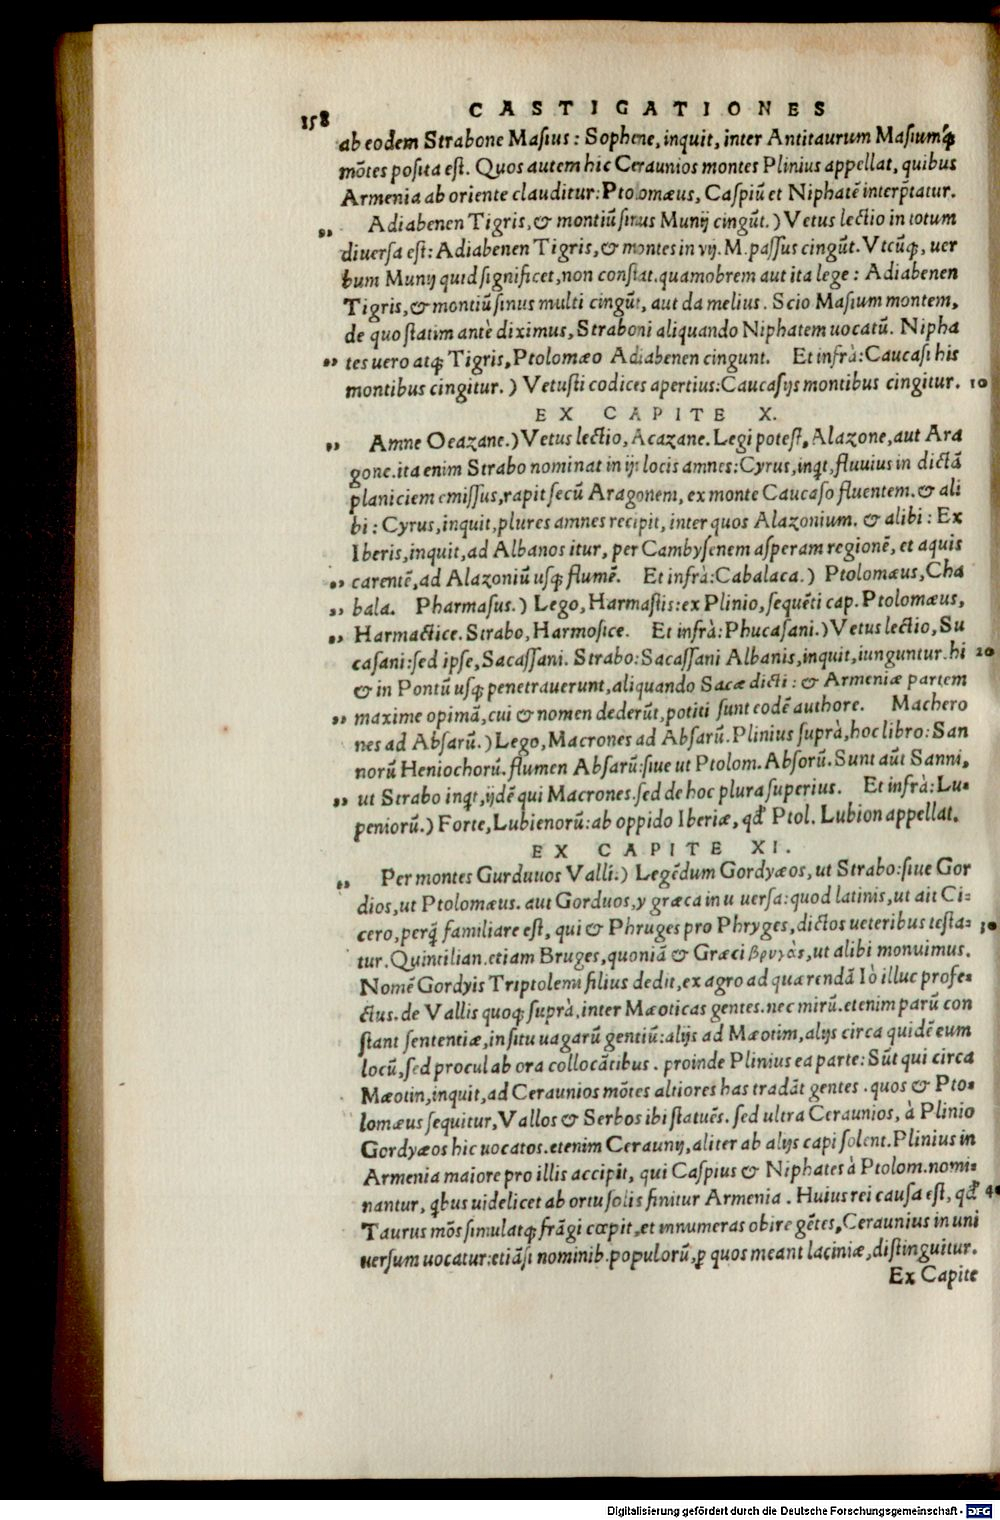 158 CASTIGATIONES
ab eodem Strabone Maſius: Sophene, inquit, inter Antitaurum Maſiumq́
mõtes poſita eſt. Quos autem hic Ceraunios montes Plinius appellat, quibus
Armenia ab oriente clauditur: Ptolomæus, Caſpiũ et Niphatẽ interp̃tatur.
„ Adiabenen Tigris, & montiũ ſinus Munij cingũt.) Vetus lectio in totum
diuerſa eſt: Adiabenen Tigris, & montes in vij. M. paſſus cingũt. Vtcũq;, uer
bum Munij quid ſignificet, non conſtat. quamobrem aut ita lege: Adiabenen
Tigris, & montiũ ſinus multi cingũt, aut da melius. Scio Maſium montem,
de quo ſtatim antè diximus, Straboni aliquando Niphatem uocatũ. Nipha
„ tes uero atq; Tigris, Ptolomæo Adiabenen cingunt. Et infrà: Caucaſi his
montibus cingitur.) Vetuſti codices apertius: Caucaſijs montibus cingitur. 10
EX CAPITE X.
„ Amne Oeazane.) Vetus lectio, Acazane. Legi poteſt, Alazone, aut Ara
gone. ita enim Strabo nominat in ijs locis amnes: Cyrus, inqt, fluuius in dictã
planiciem emiſſus, rapit ſecũ Aragonem, ex monte Caucaſo fluentem. & ali
bi: Cyrus, inquit, plures amnes recipit, inter quos Alazonium. & alibi: Ex
Iberis, inquit, ad Albanos itur, per Cambyſenem aſperam regionẽ, et aquis
„ carentẽ, ad Alazoniũ uſq; flumẽ. Et infrà: Cabalaca.) Ptolomæus, Cha
„ bala. Pharmaſus.) Lego, Harmaſtis: ex Plinio, ſequẽti cap. Ptolomæus,
„ Harmactice. Strabo, Harmoſice. Et infrà: Phucaſani.) Vetus lectio, Su
caſani: ſed ipſe, Sacaſſani. Strabo: Sacaſſani Albanis, inquit, iunguntur. hi 20
& in Pontũ uſq; penetrauerunt, aliquando Sacæ dicti: & Armeniæ partem
„ maxime opimã, cui & nomen dederũt, potiti ſunt eodẽ authore. Machero
nes ad Abſarũ.) Lego, Macrones ad Abſarũ. Plinius ſuprà, hoc libro: San
norũ Heniochorũ. flumen Abſarũ: ſiue ut Ptolom. Abſorũ. Sunt aũt Sanni,
„ ut Strabo inqt, ijdẽ qui Macrones. ſed de hoc plura ſuperius. Et infrà: Lu-
peniorũ.) Forte, Lubienorũ: ab oppido Iberiæ, qđ Ptol. Lubion appellat.
EX CAPITE XI.
„ Per montes Gurduuos Valli.) Legẽdum Gordyæos, ut Strabo: ſiue Gor
dios, ut Ptolomæus. aut Gorduos, y græca in u uerſa: quod latinis, ut ait Ci-
cero, perq̃ familiare eſt, qui & Phruges pro Phryges, dictos ueteribus teſta- 30
tur. Quintilian. etiam Bruges, quoniã & Græci βρυγὰς, ut alibi monuimus.
Nomẽ Gordyis Triptolemi filius dedit, ex agro ad quærendã Iò illuc profe-
ctus. de Vallis quoq; ſuprà, inter Mæoticas gentes. nec mirũ. etenim parũ con
ſtant ſententiæ, in ſitu uagarũ gentiũ: alijs ad Mæotim, alijs circa quidẽ eum
locũ, ſed procul ab ora collocãtibus. proinde Plinius ea parte: Sũt qui circa
Mæotin, inquit, ad Ceraunios mõtes altiores has tradãt gentes. quos & Pto-
lomæus ſequitur, Vallos & Serbos ibi ſtatuẽs. ſed ultra Ceraunios, à Plinio
Gordyæos hic uocatos. etenim Ceraunij, aliter ab alijs capi ſolent. Plinius in
Armenia maiore pro illis accipit, qui Caſpius & Niphates à Ptolom. nomi-
nantur, qbus uidelicet ab ortu ſolis finitur Armenia. Huius rei cauſa eſt, qđ 40
Taurus mõs ſimulatq; frãgi cœpit, et innumeras obire gẽtes, Ceraunius in uni
uerſum uocatur: etiãſi nominib. populorũ, ꝑ quos meant laciniæ, diſtinguitur.
Ex Capite
Digitalisierung gefördert durch die Deutsche Forschungsgemeinschaft - DFG